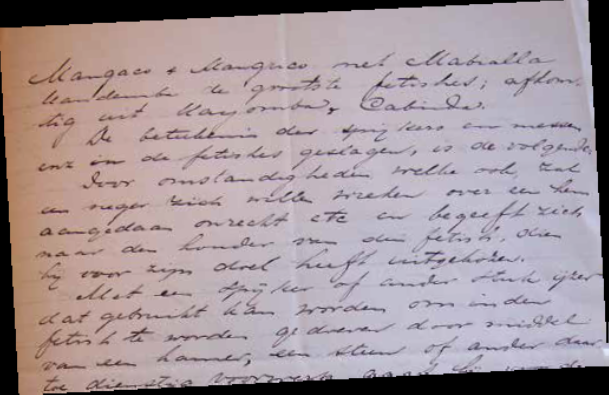 Mangaco + Mangrico met Mabialla
Mandembe de grootste fetishes; afkoms-
tig uit Mayomba, Cabinda.
De beteekenis der spijkers en messen
enz in de fetishes geslagen, is de volgende:
Door omstandigheden welke ook, zal
een neger zich willen wreken over een hem
aangedaan onrecht etc en begeeft zich
naar den houder van die fetish, dien
hij voor zijn doel heeft uitgekozen.
Met een spijker of ander stuk ijzer
dat gebruikt kan worden om in den
fetish te worden gedreven door middel
van een hamer, een steen of ander daar
toe dienstig voorwerp gaat hij